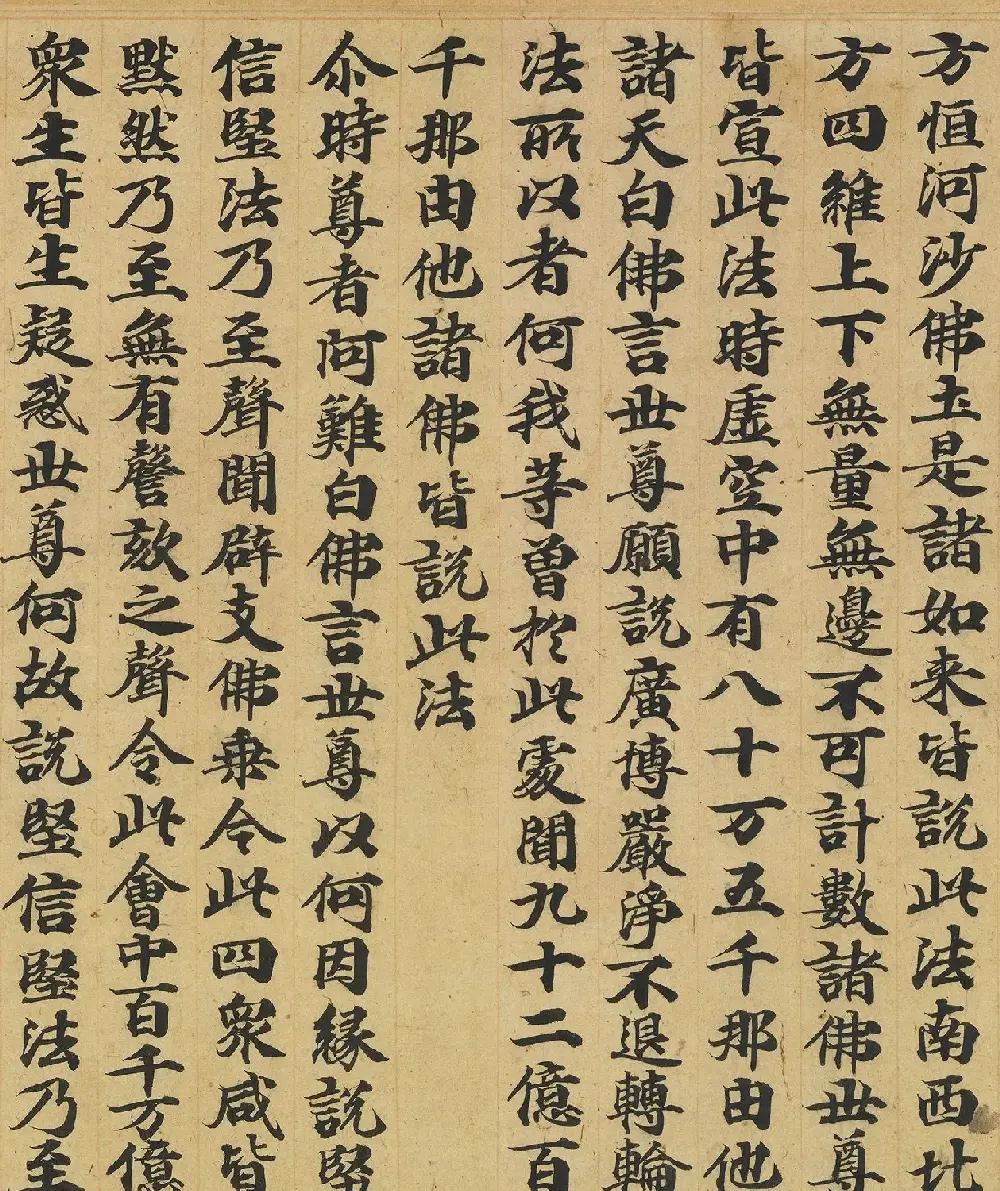 方恒河沙佛土是諸如来皆說此法南西北
方四維上下無量無邊不可計數諸佛世尊
皆宣此法時虛空中有八十万五千那由他
諸天白佛言世尊願說廣博嚴淨不退轉輪
法所以者何我等曾於此處聞九十二億百
千那由他諸佛皆說此法
尒時尊者阿難白佛言世尊以何因緣說堅
信堅法乃至聲聞辟支佛乗令此四衆咸皆
黙然乃至無有謦欬之聲令此會中百千万億
衆生皆生疑惑世尊何故說堅信堅法乃至